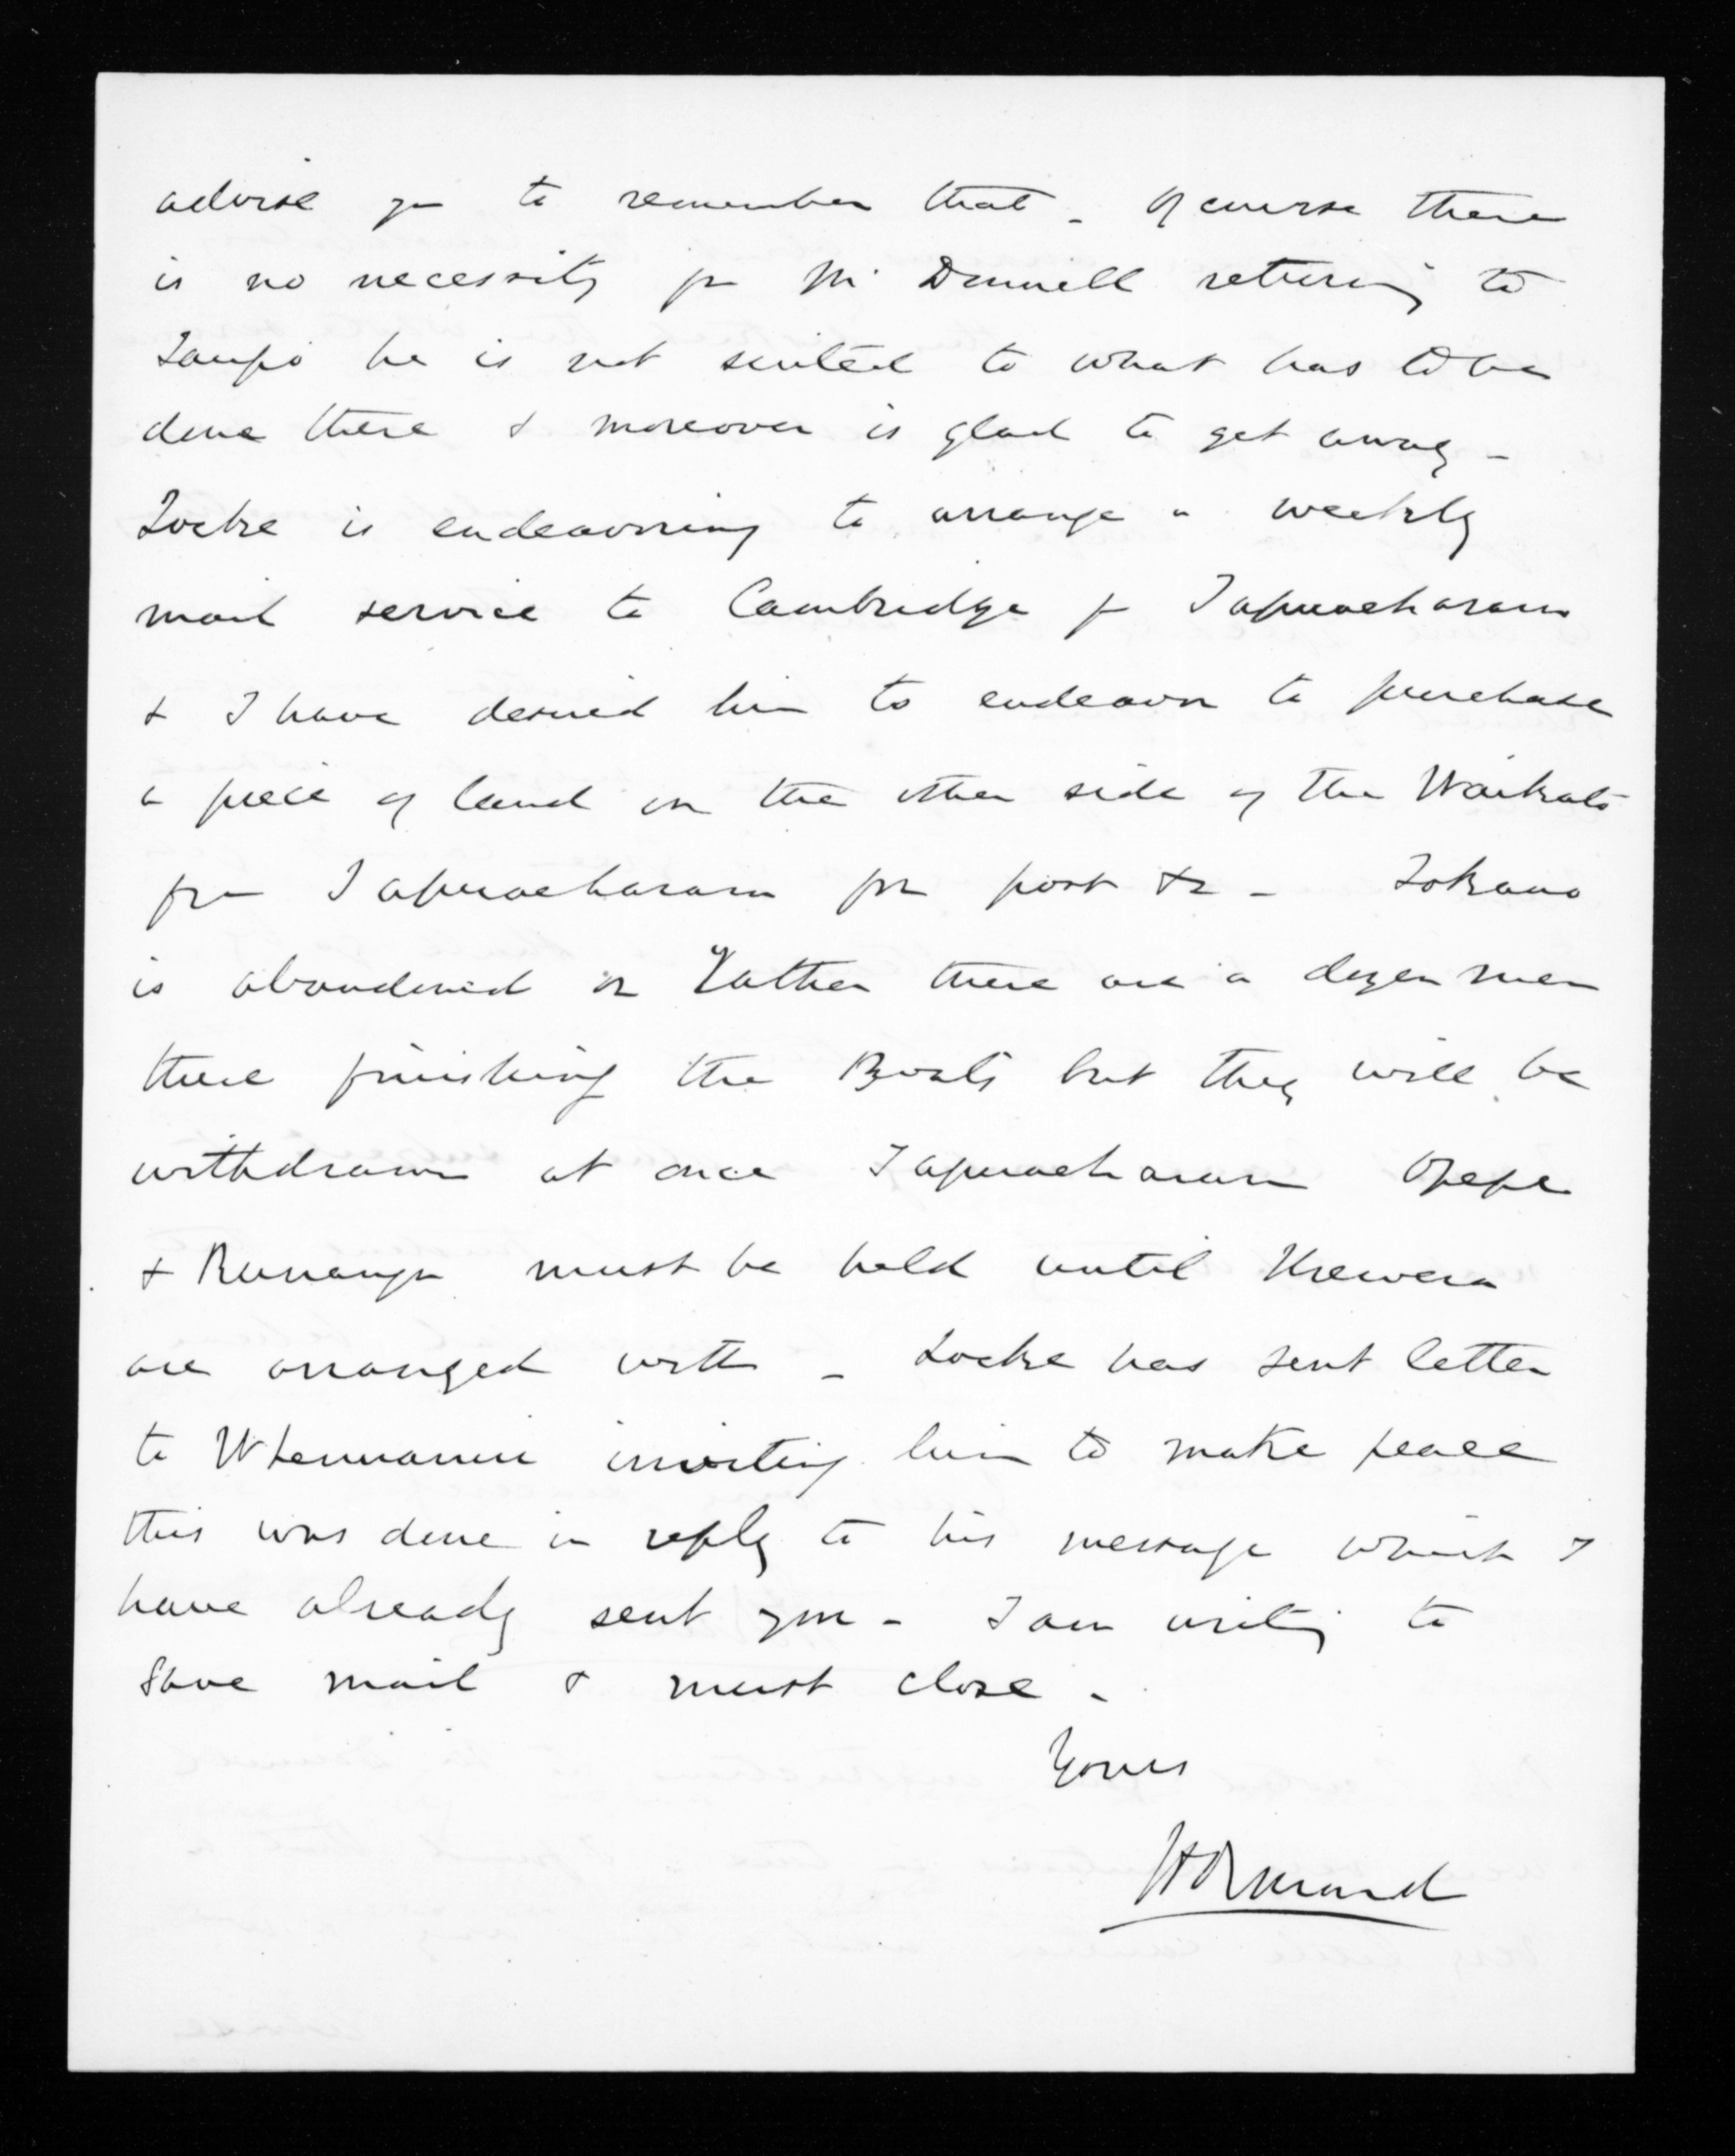 advise you to remember that - Of course there
is no necessity for McDonnell returning to
Taupo he is not suited to what has to be
done there & moreover is glad to get away -
Locke is endeavoring to arrange a weekly
mail service to Cambridge fr Tapuaeharuru
& I have desired him to endeavor to purchase
a piece of land on the other side of the Waikato
from Tapuaeharuru for post &c - Tokano
is abandoned or rather there are a dozen men
there finishing the Boats but they will be
withdrawn at once Tapuaeharuru Opepe
& Runanga must be held until Urewera
are arranged with - Locke has sent letter
to Whenuanui inviting him to make peace
this was done in reply to his message which I
have already sent you - I am writing to
save mail & must close -
Yours
JDOrmond